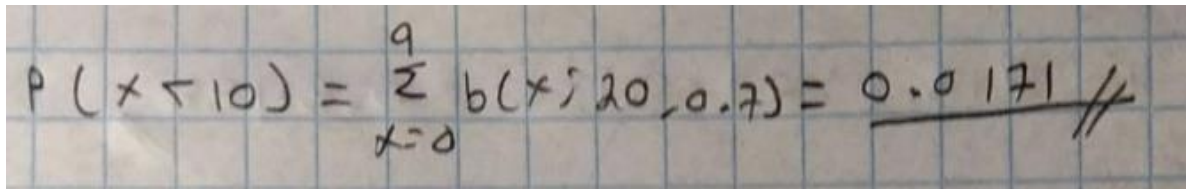 P(x < 10) = 9Σx=0 b(x; 20, 0.7) = 0.0171 //